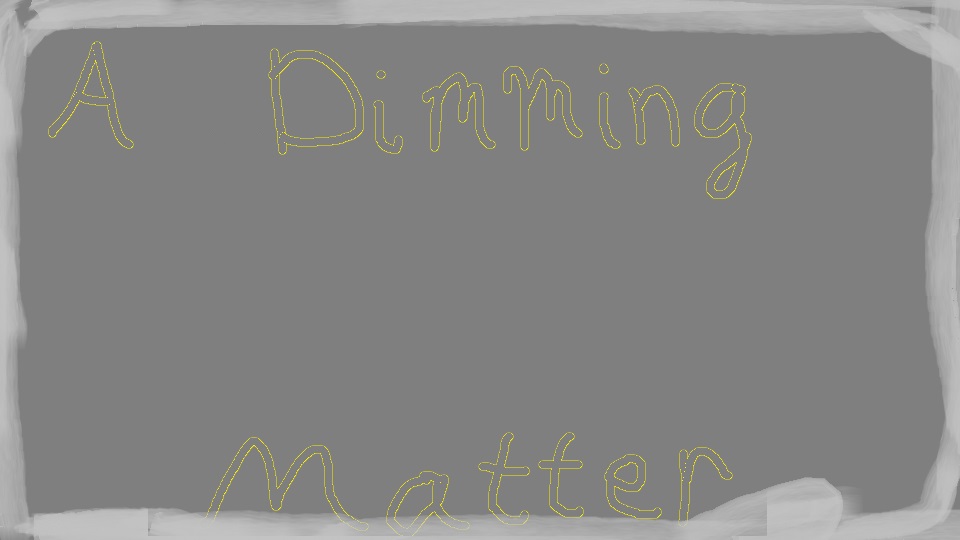 A Dimming
Matter